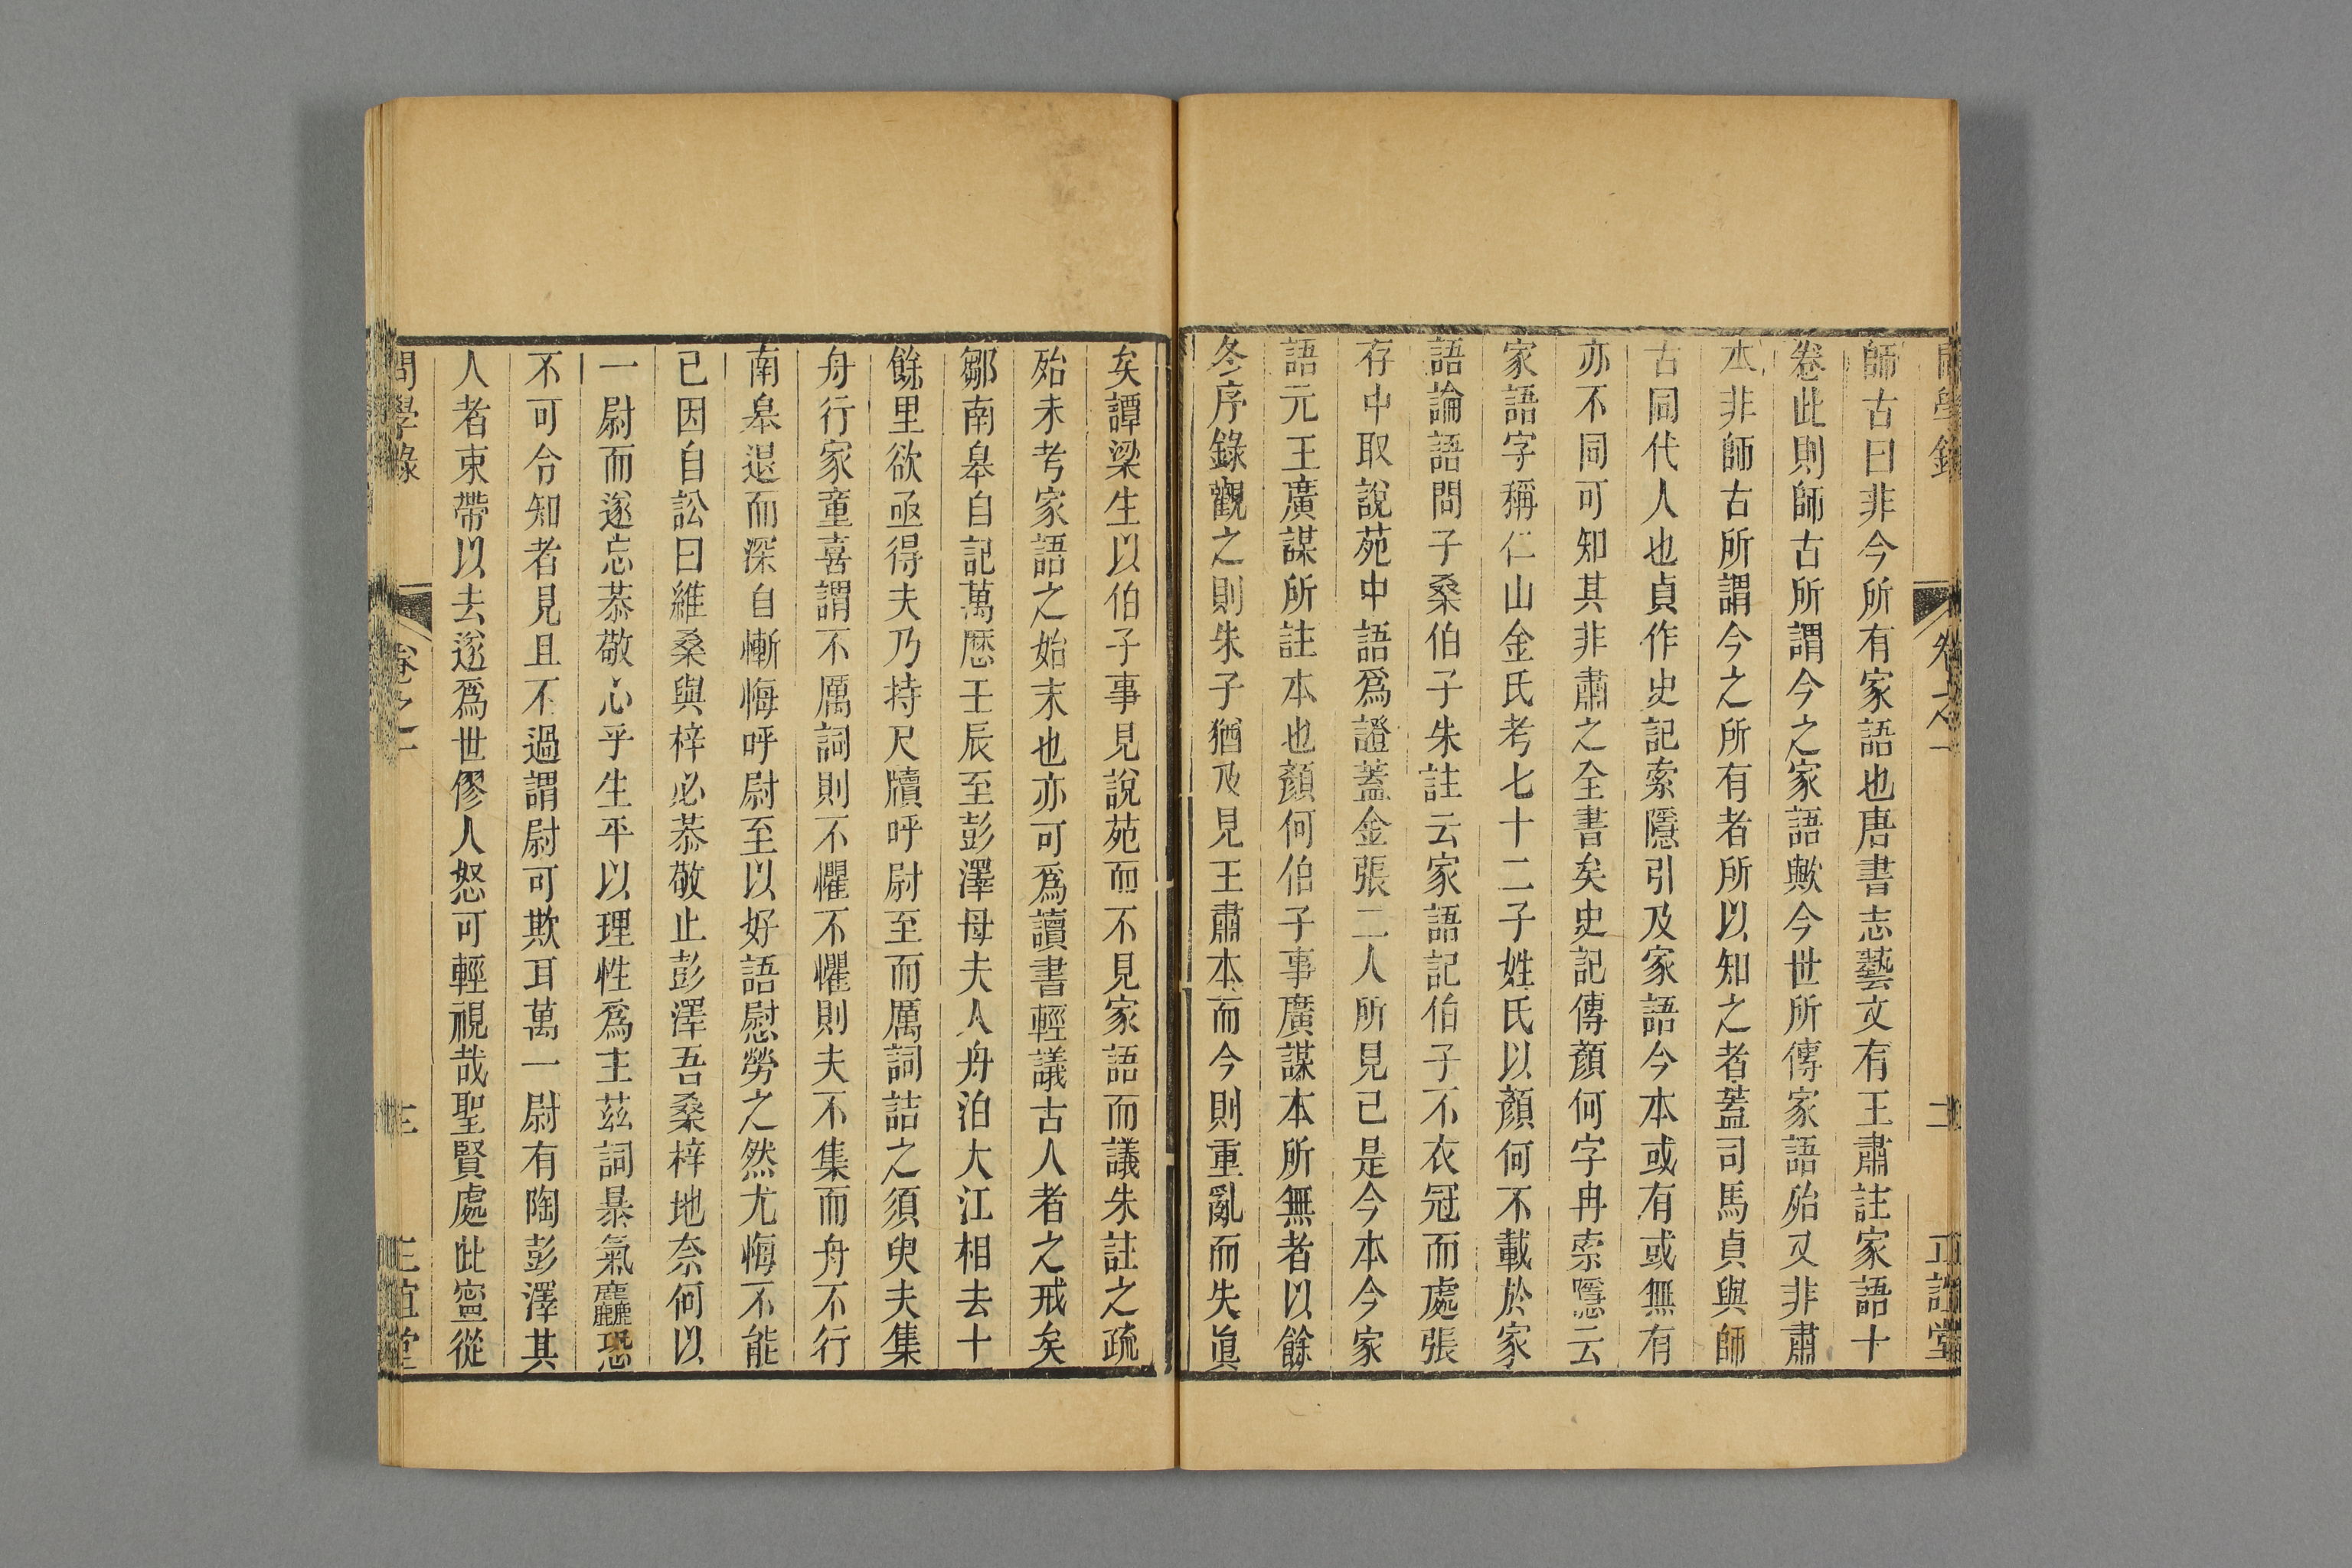 師古曰非今所有家語也唐書志藝文有王肅註家語十
卷此則師古所謂今之家語歟今世所傳家語殆又非肅
本非師古所謂今之所有者所以知之者蓋司馬貞與師
古同代人也貞作史記索隱引及家語今本或有或無有
亦不同可知其非肅之全書矣史記傳顏何字冉索隱云
家語字稱仁山金氏考七十二子姓氏以顏何不載於家
語論語問子桑伯子朱註云家語記伯子不衣冠而處張
存中取說苑中語爲證蓋金張二人所見已是今本今家
語元王廣謀所註本也顏何伯子事廣謀本所無者以餘
冬序錄觀之則朱子猶及見王肅本而今則重亂而失眞
矣譚梁生以伯子事見說苑而不見家語而議朱註之疏
殆未考家語之始末也亦可爲讀書輕議古人者之戒矣
鄒南皋自記萬歷壬辰至彭澤母夫人舟泊大江相去十
餘里欲亟得夫乃持尺牘呼尉至而厲詞詰之須臾夫集
舟行家童喜謂不厲詞則不懼不懼則夫不集而舟不行
南皋退而深自慚悔呼尉至以好語慰勞之然尤悔不能
已因自訟曰維桑與梓必恭敬止彭澤吾桑梓地奈何以
一尉而遂忘恭敬心乎生平以理性爲主茲詞暴氣麤恐
不可令知者見且不過謂尉可欺耳萬一尉有陶彭澤其
人者束帶以去遂爲世僇人怒可輕視哉聖賢處此寍從
問學錄
卷之一
正誼堂